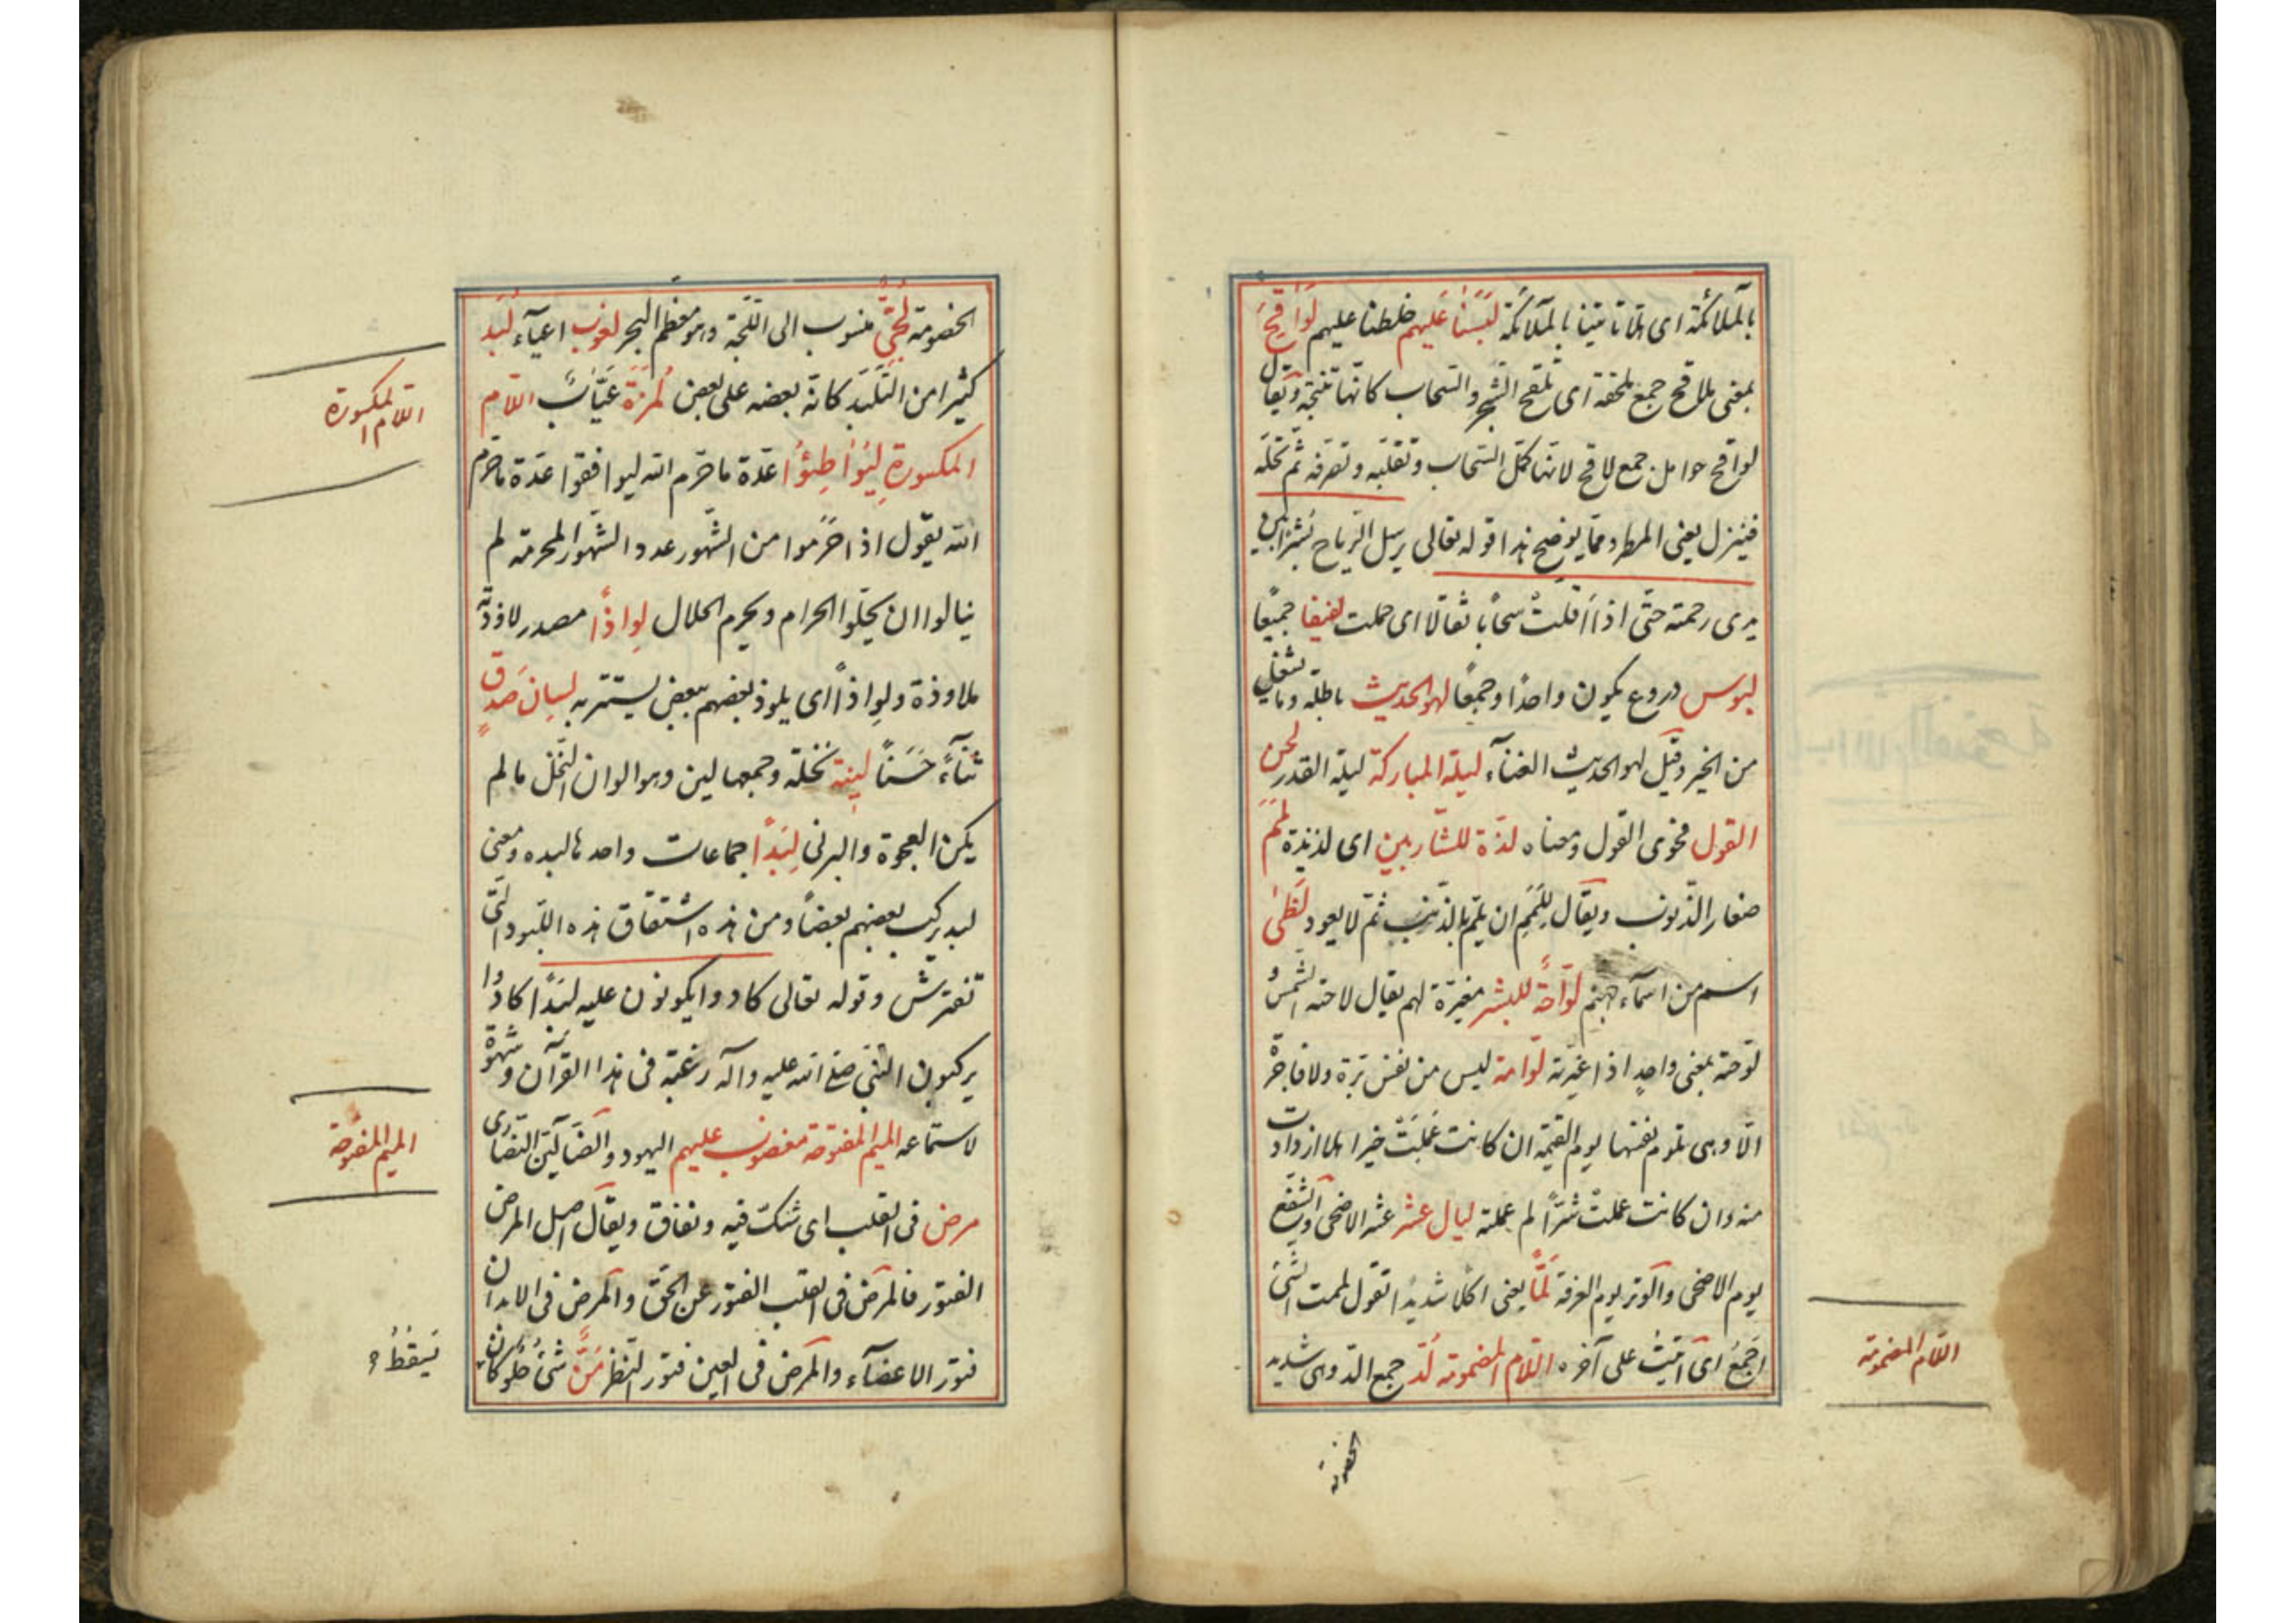 بالملائكة اى هلا تاتينا بالملائكة لَبَسنا عَليهم خلطنا عليهم لَوَاقِحَ
بمعنى ملاقح جمع ملحقة اى تلقح الشجر والسّحاب كانّها تنتجه ويقال
لواقح حوامل جمع لاقح لانها تحمل السّحاب وتقلّبه وتصرّفه ثمّ تحلّه
فينزل يعنى المطر وممّا يوضح هذا قوله تعالى يرسل الرّياح نشرًا بين
يدى رحمته حتّى اذا اقلّت سحابًا ثقالا اى حملت لفيفا جميعًا
لبوس دروع يكون واحدًا وجمعًا لهو الحديث باطله وما يشغل
من الخير وقيل لهو الحديث الغنآء ليلة المباركة ليلة القدر لحن
القول فحوى القول ومعناه لذّة للشّاربين اى لذيذة لَمَم
صغار الذّنوب ويقال اللَّمَم ان يلمّ بالذّنب ثمّ لا يعود لَظٰى
اسم من اسمآء جهنم لوّاحةً للبشر مغيّرة لهم يقال لاحته الشّمسُ
لوّحته بمعنى واحدٍ اذا غيّرته لوّامة ليس من نفس برّة ولا فاجرة
الّا وهى تلوم نفسها يوم القيمة ان كانت عملت خيرا هلّا ازدادت
منه وان كانت عملت شرًّا لم عملته ليال عشر عشر الاضحى والشّفع
يوم الاضحى والوتر يوم العرفة لَمًّا يعنى اكلا شديدًا تقول لممت الشّئ
اجمع اى اتيت على آخره اللّام المضمومة لُدّ جمع الدّ وهى شديد
اللّام المضمومة
الخصومة
الخصومة لُجّىّ منسوب الى اللّجّة وهو معظم البحر لغوب اعيآء لُبَد
كثيرا من التّلبّد كانّه بعضه على بعض لُمَزَة عَيّاب اللّام
المكسورة لِيُوٰاطِئُوا عدّة ما حرّم الله ليوافقوا عدّة ما حرّم
اللام المكسورة
الله يقول اذا حرّموا من الشّهور عدد الشّهور المحرمة لم
يبالوا ان يحلّوا الحرام ويحرم الحلال لِواذًا مصدر لاوذته
ملاوذة ولِواذًا اى يلوذ بعضهم ببعض يستتر به لِسانَ صدقٍ
ثنآءً حَسَنًا لِينة نخلة وجمعها لين وهو الوان النّخل ما لم
يكن العجوة والبرنى لِبَدًا جماعات واحدها لبده ومعنى
لبد يركب بعضهم بعضًا ومن هذه اشتقاق هذه اللّبود الّتى
تفترش وقوله تعالى كادوا يكونون عليه لبدًا كادوا
يركبون النّبى صلع الله عليه وآله رغبة فى هذا القرآن وشهوة
لاستماعه الميم المفتوحة مغضوب عليهم اليهود والضآلّين النّصارى
الميم المفتوحة
مرض فى القلب اى شكّ فيه ونفاق ويقال اصل المرض
الفتور فالمرض فى القلب الفتور عن الحقّ والمرض فى الابدان
فتور الاعضآء والمرض فى العين فتور النظر مَنَّ شئ حُلو كان
يَسْقُطُ